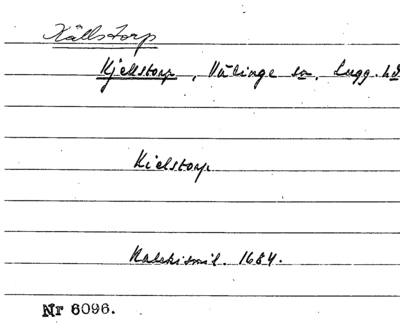 Källstorp
Kjellstorp, Välinge sn, Lugg. hd
Kielstorp
1684.
Nr 6096.